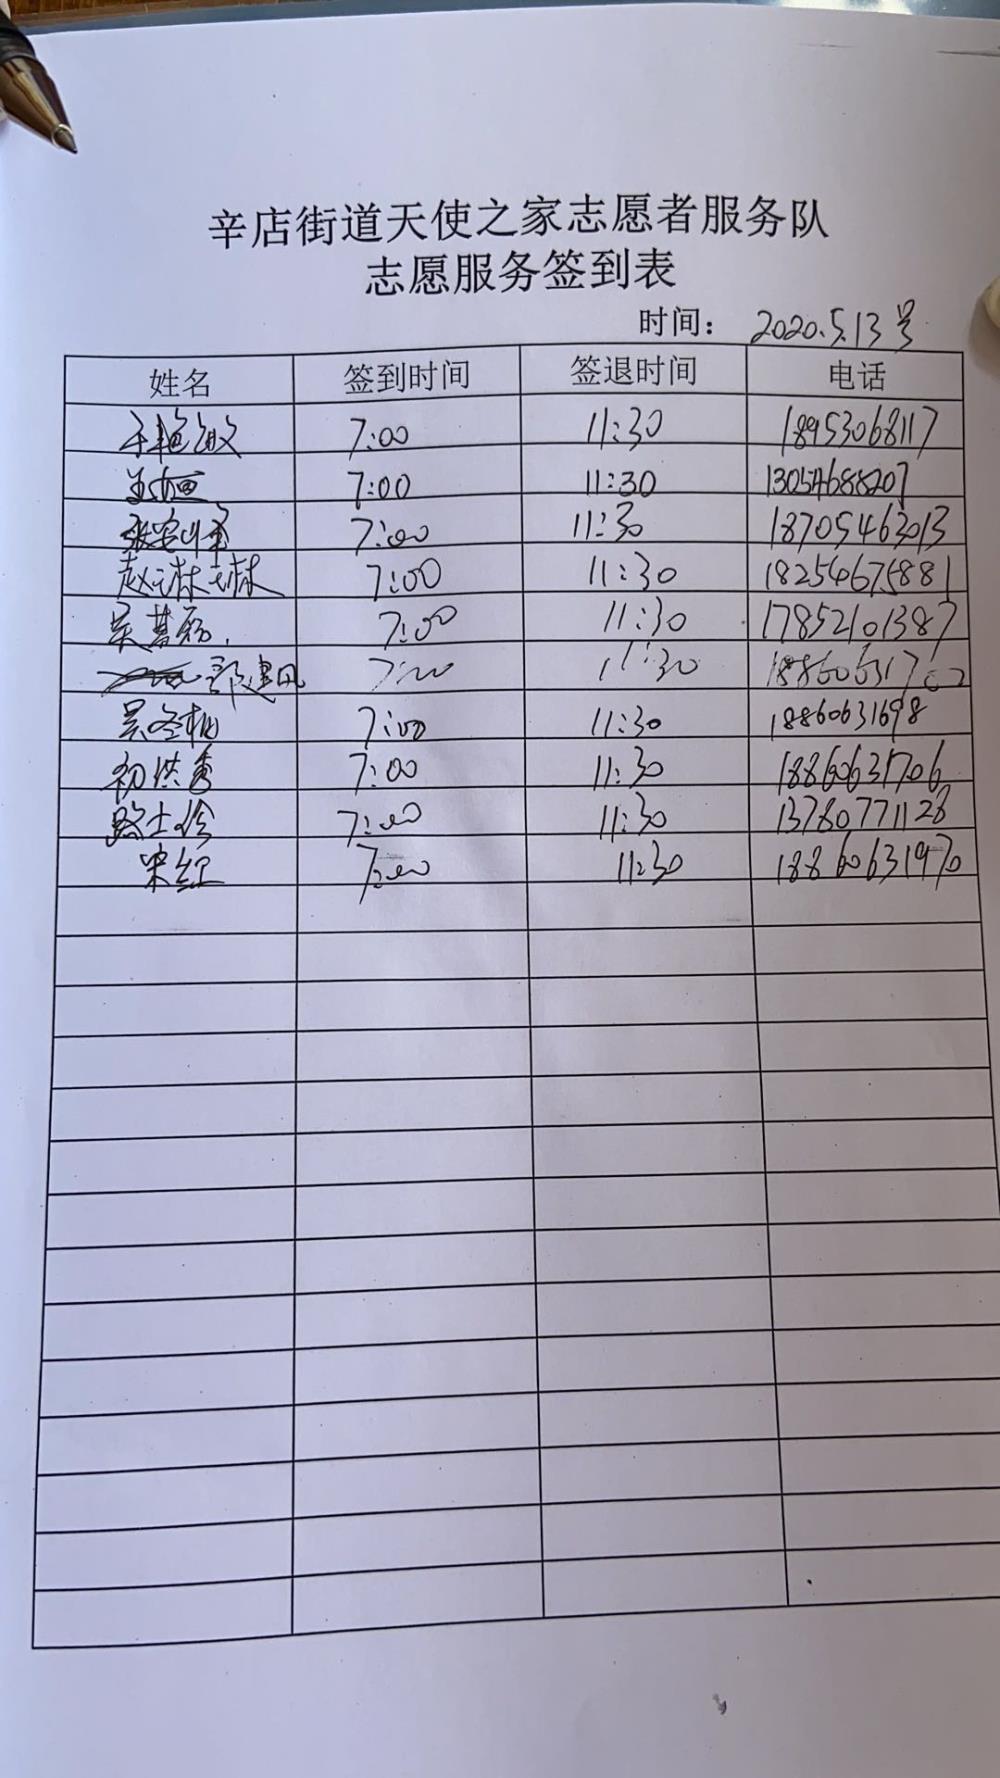 辛店街道天使之家志愿者服务队
志愿服务签到表
时间： 2020.5.13号
姓名 签到时间 签退时间 电话
于艳敏 7:00 11:30 18953068117
7:00 11:30 13054688207
7:00 11:30 18705463013
赵 7:00 11:30 18254675881
7:00 11:30 17852101387
郭建凤 7:00 11:30
吴冬梅 7:00 11:30 18860631698
初洪香 7:00 11:30 18860631706
路士玲 7:00 11:30 13780771128
宋红 7:00 11:30 18860631970